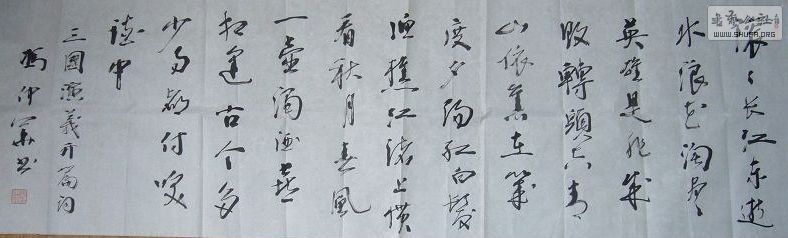 滚々长江东逝
水浪花淘尽
英雄是非成
敗轉頭空青
山依舊在幾
度夕陽红白髮
渔樵江渚上惯
看秋月春風
一壶濁酒喜
相逢古今多
少事都付笑
谈中
三國演義开篇词
馮仲书
书艺公社
WWW.SHUFA.ORG